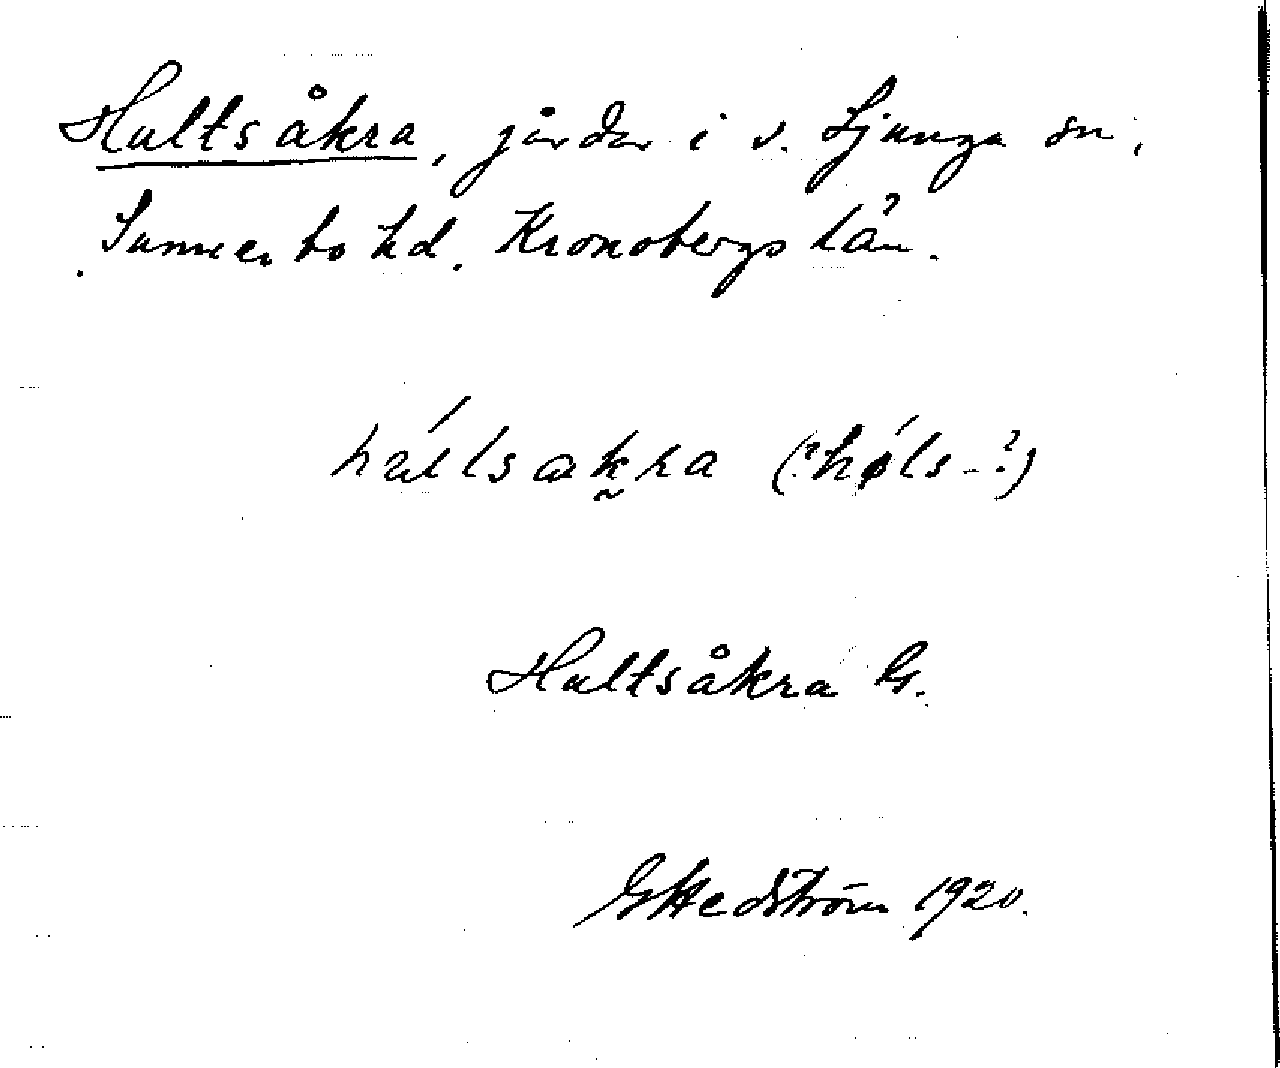 Hultsåkra, gårdar i s. Ljunga sn,
Sunnerbo hd. Kronobergs län.
(?hóls-?)
Hultsåkra G.
GHedström 1920.